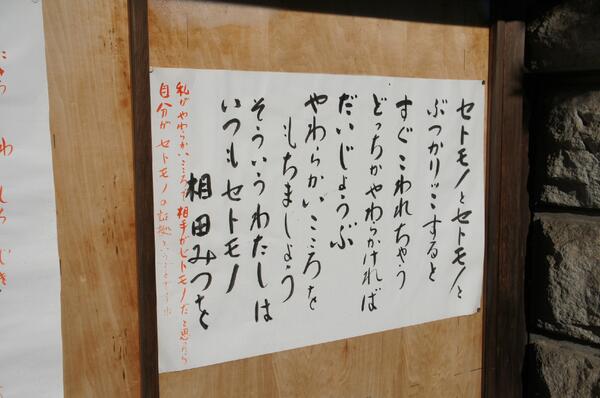 セトモノとセトモノと
ぶつかりッこすると
すぐこわれちゃう
どっちかやわらかければ
だいじょうぶ
やわらかいこころを
もちましょう
そういうわたしは
いつもセトモノ
相田みつを
私がやわらかいこころで相手がセトモノだと思ったら
自分がセトモノの証拠という